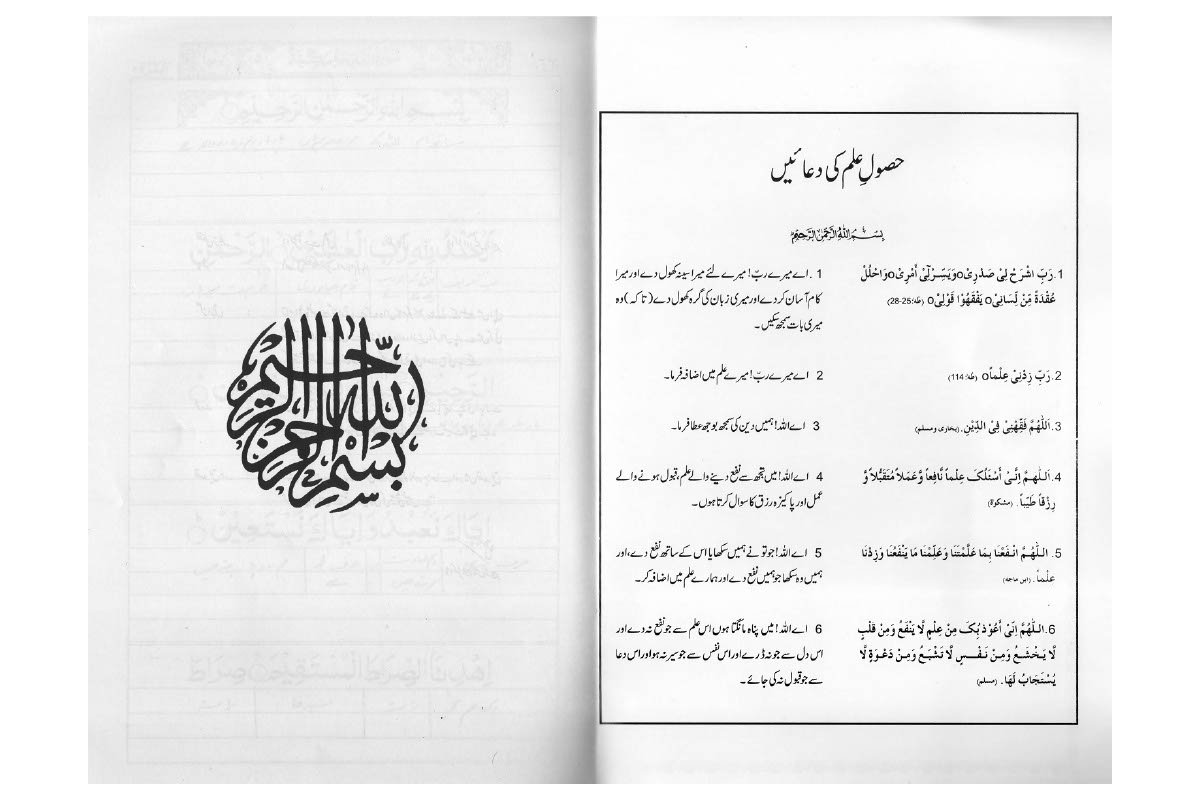 حصولِ علم کی دعائیں
بِسْمِ اللهِ الرَّحْمٰنِ الرَّحِیْمِ
1. رَبِّ اشْرَحْ لِیْ صَدْرِیْo وَیَسِّرْلِیْٓ أَمْرِیْo وَاحْلُلْ
عُقْدَةً مِّنْ لِّسَانِیْo یَفْقَهُوْا قَوْلِیْo (طٰهٰ:25-28)
1. اے میرے ربّ! میرے لئے میرا سینہ کھول دے اور میرا
کام آسان کر دے اور میری زبان کی گرہ کھول دے (تا کہ) وہ
میری بات سمجھ سکیں۔
2. رَبِّ زِدْنِیْ عِلْماًo (طٰهٰ:114)
2 اے میرے ربّ! میرے علم میں اضافہ فرما۔
3. اَللّٰهُمَّ فَقِّهْنِیْ فِی الدِّیْنِ. (بخاری و مسلم)
3 اے اللہ! ہمیں دین کی سمجھ بوجھ عطا فرما۔
4. اَللّٰهُمَّ اِنِّیْ أَسْئَلُکَ عِلْماً نَّافِعاً وَّعَمَلاً مُّتَقَبَّلاً وَّ
رِزْقاً طَیِّباً. (مشکوة)
4 اے اللہ! میں تجھ سے نفع دینے والے علم، قبول ہونے والے
عمل اور پاکیزہ رزق کا سوال کرتا ہوں۔
5. اَللّٰهُمَّ انْفَعْنَا بِمَا عَلَّمْتَنَا وَعَلِّمْنَا مَا یَنْفَعُنَا وَزِدْنَا
عِلْماً. (ابن ماجه)
5 اے اللہ! جو تو نے ہمیں سکھایا اس کے ساتھ نفع دے، اور
ہمیں وہ سکھا جو ہمیں نفع دے اور ہمارے علم میں اضافہ کر۔
6. اَللّٰهُمَّ اِنِّیْ أَعُوْذُ بِکَ مِنْ عِلْمٍ لَّا یَنْفَعُ وَمِنْ قَلْبٍ
لَّا یَخْشَعُ وَمِنْ نَفْسٍ لَّا تَشْبَعُ وَمِنْ دَعْوَةٍ لَّا
یُسْتَجَابُ لَهَا. (مسلم)
6 اے اللہ! میں پناہ مانگتا ہوں اس علم سے جو نفع نہ دے اور
اس دل سے جو نہ ڈرے اور اس نفس سے جو سیر نہ ہو اور اس دعا
سے جو قبول نہ کی جائے۔
بسم الله الرحمن الرحيم